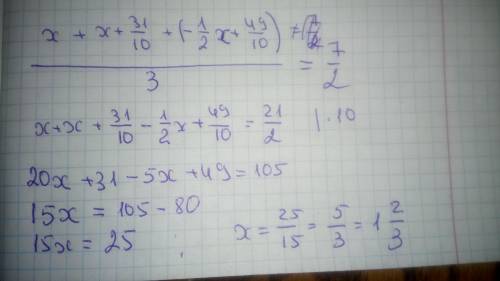 (x + x + 31/10 + (-1/2 x + 49/10)) / 3 = 7/2
x + x + 31/10 - 1/2 x + 49/10 = 21/2 | · 10
20x + 31 - 5x + 49 = 105
15x = 105 - 80
15x = 25 ; x = 25/15 = 5/3 = 1 2/3